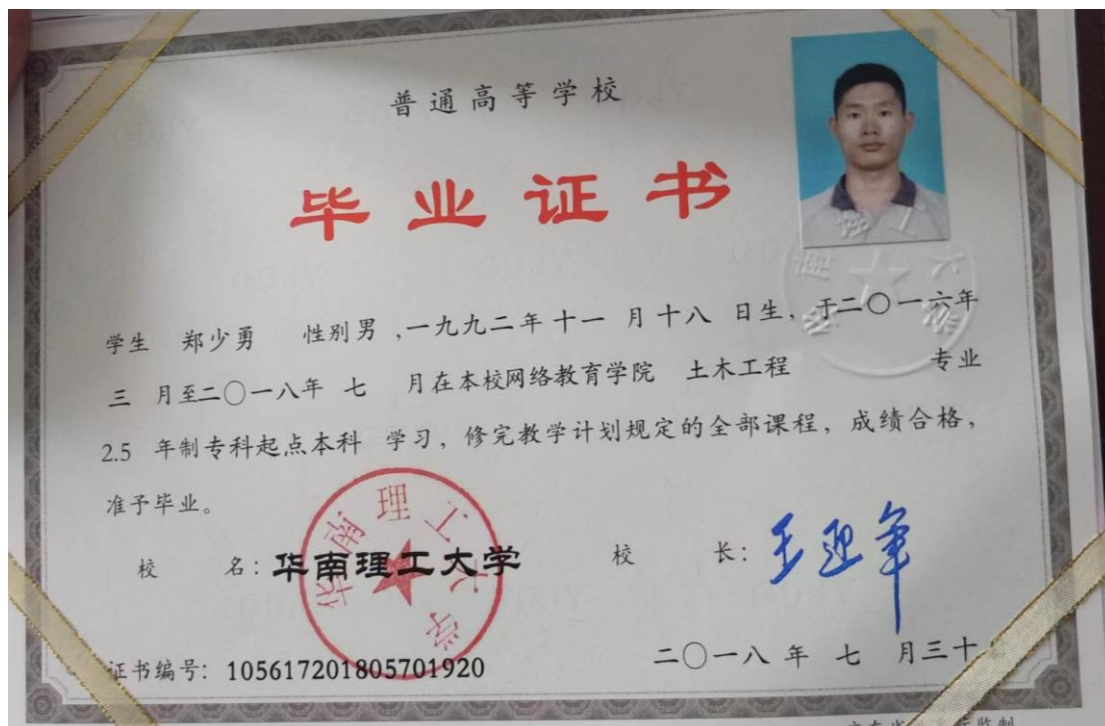 普通高等学校
毕业证书
学生 郑少勇 性别男,一九九二年十一 月十八 日生,于二〇一六年
三 月至二〇一八年 七 月在本校网络教育学院 土木工程 专业
2.5 年制专科起点本科 学习，修完教学计划规定的全部课程，成绩合格，
准予毕业。
校 名：华南理工大学 校 长：王迎军
华南理工大学
证书编号：105617201805701920 二〇一八 年 七 月三十